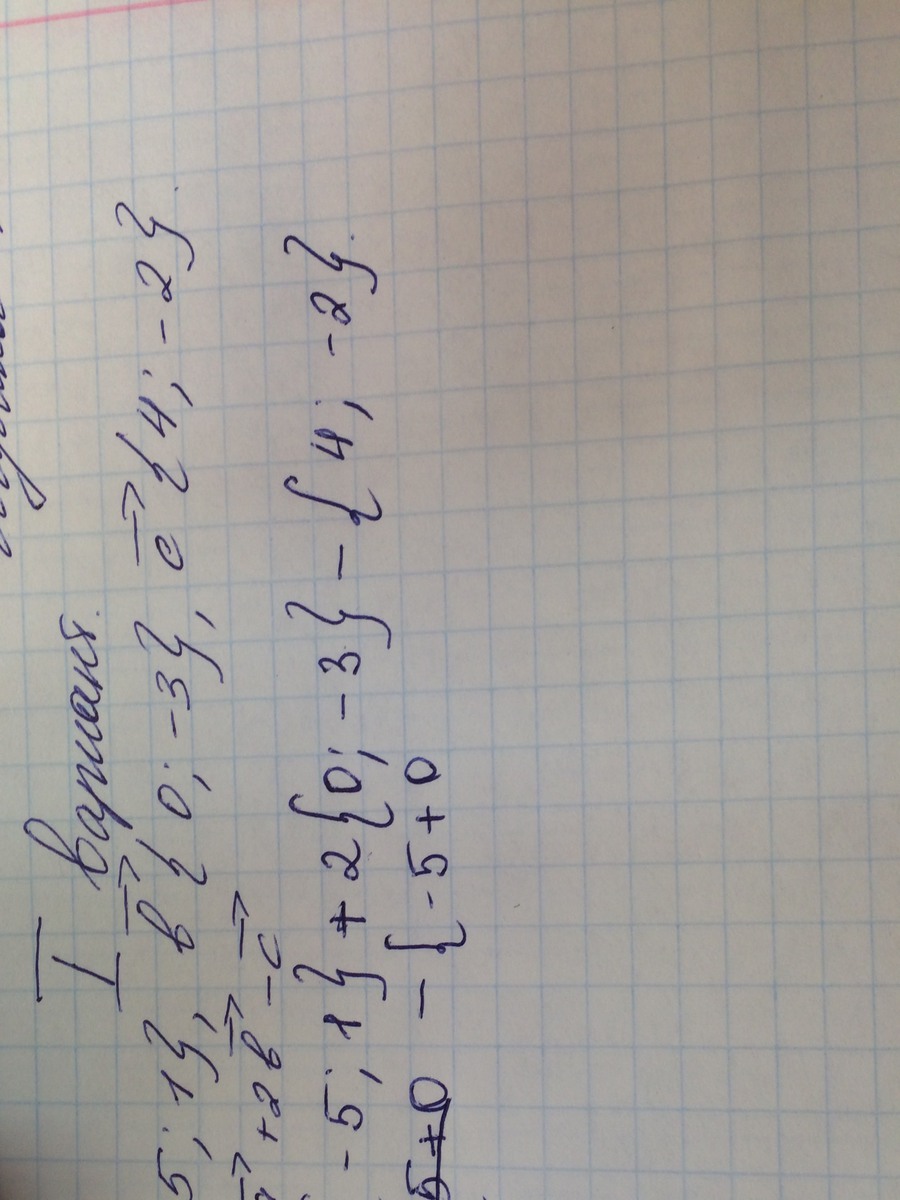 I вариант.
5; 1}, в⃗ {0; -3}, с⃗ {4; -2}.
+2в⃗ -с⃗
-5; 1} +2{0; -3} - {4; -2}.
5+0 - {-5+0